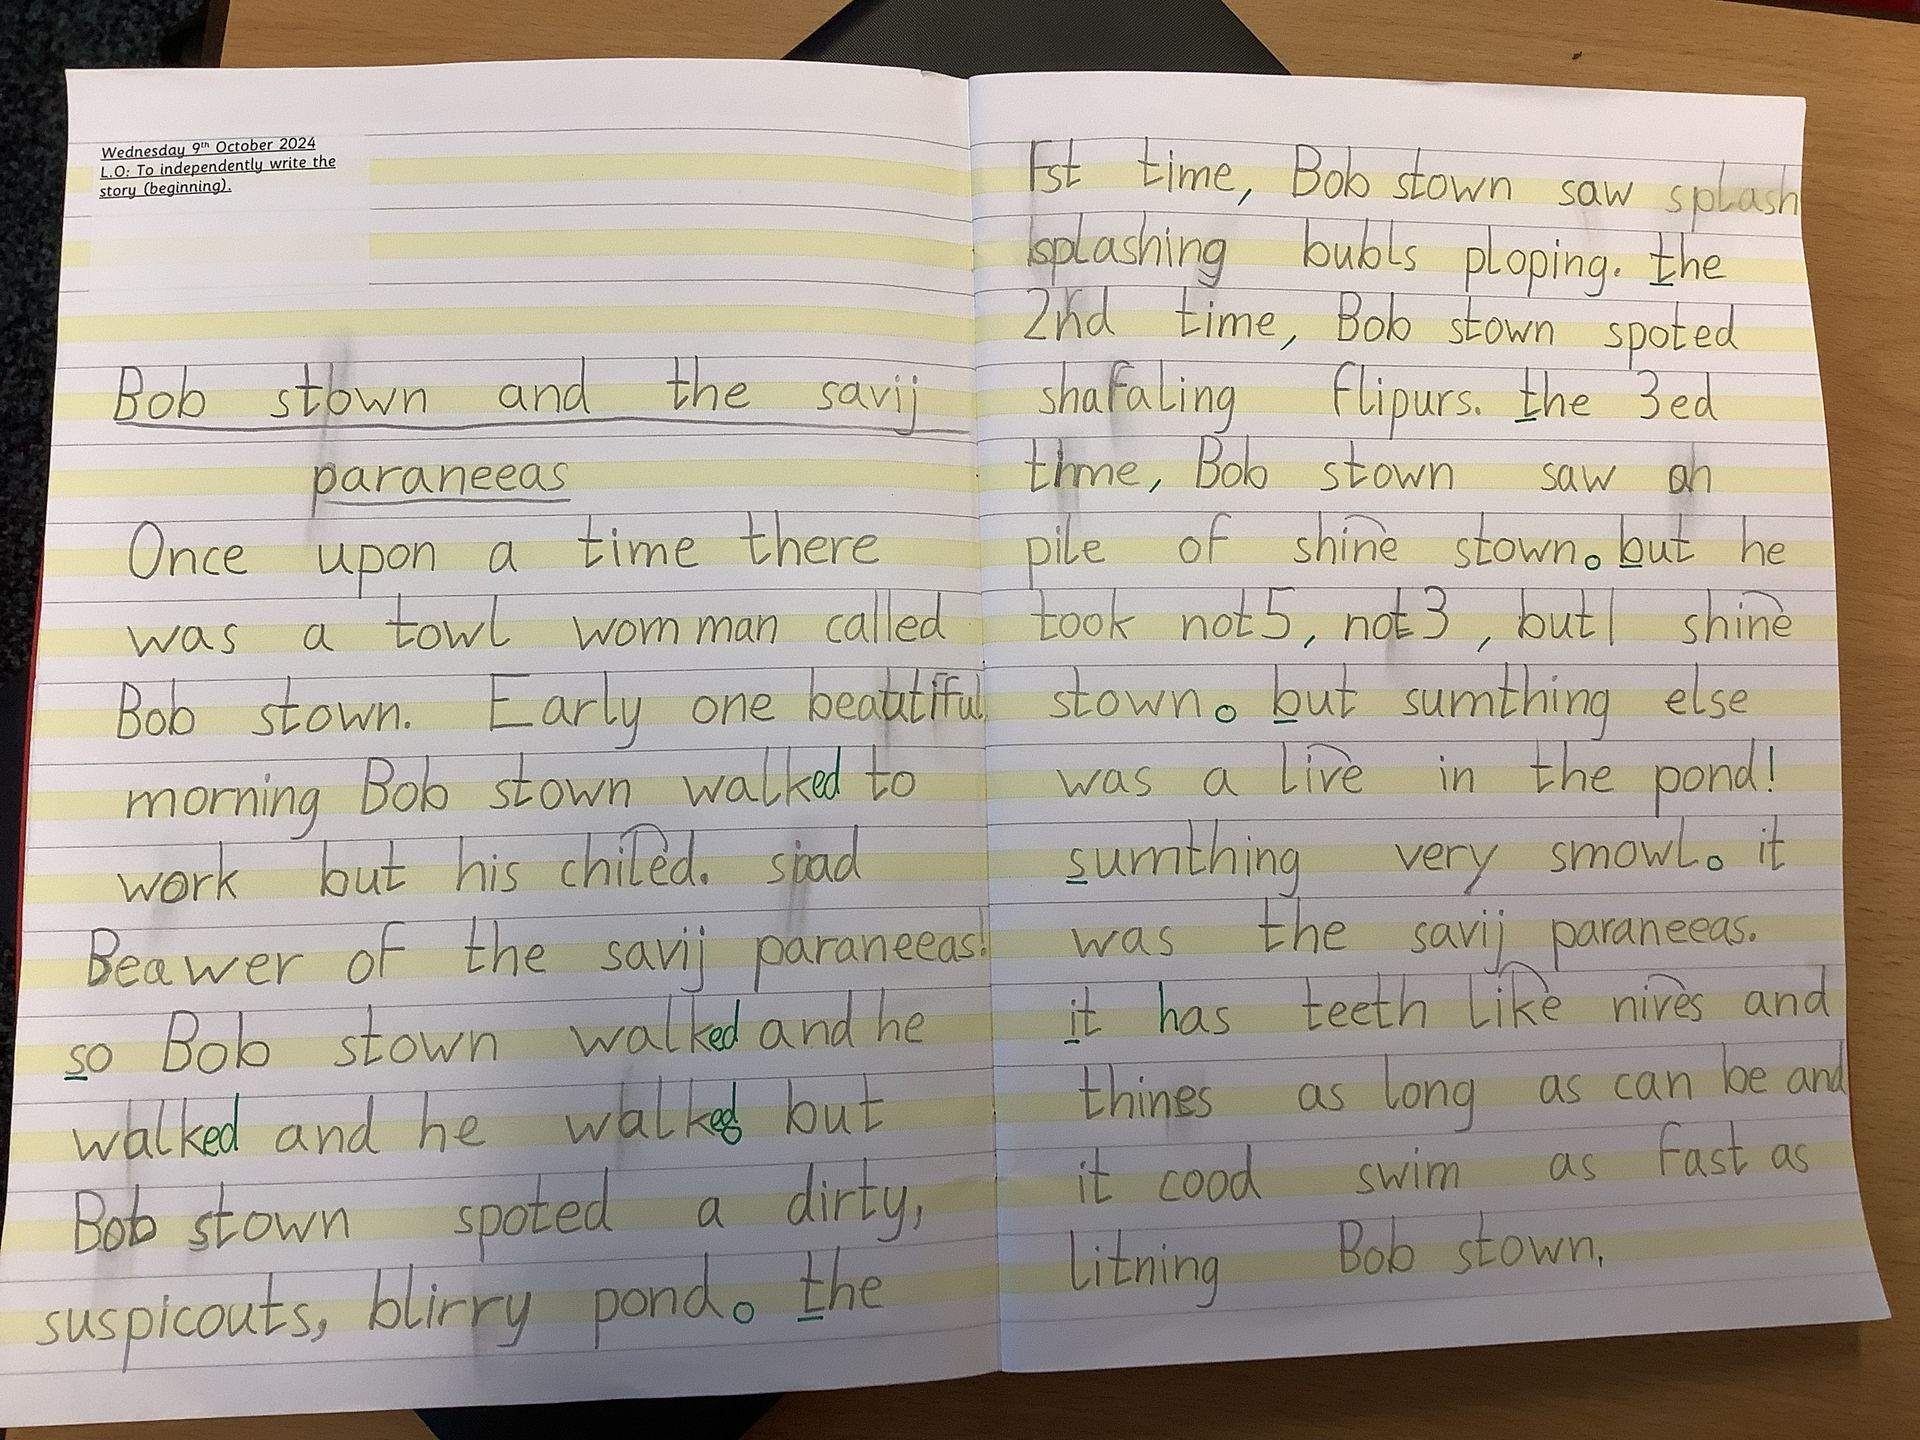 Wednesday 9th October 2024
L.O: To independently write the
story (beginning).
Bob stown and the savij
paraneeas
Once upon a time there
was a towl womman called
Bob stown. Early one beautiful
morning Bob stown walked to
work but his chiled. siad
Beawer of the savij paraneeas!
so Bob stown walked and he
walked and he walked but
Bob stown spoted a dirty,
suspicouts, blirry pond. the
Fst time, Bob stown saw splash
splashing bubls ploping. the
2nd time, Bob stown spoted
shafaling flipurs. the 3ed
time, Bob stown saw a
pile of shine stown. but he
took not 5, not 3, but 1 shine
stown. but sumthing else
was a live in the pond!
sumthing very smowl. it
was the savij paraneeas.
it has teeth like nives and
thines as long as can be and
it cood swim as fast as
litning Bob stown.